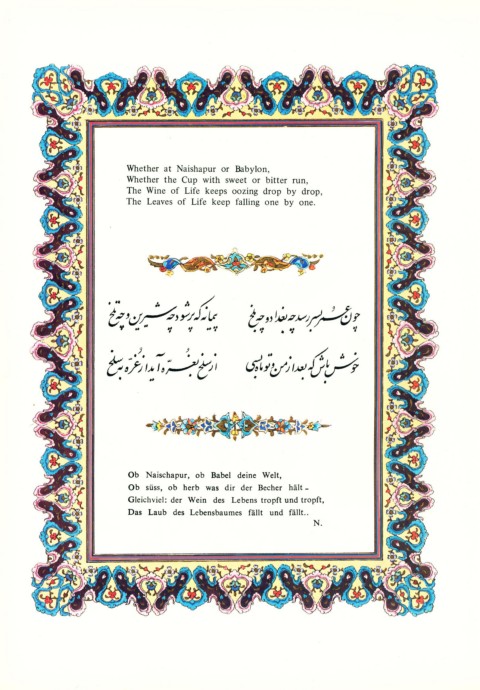 Whether at Naishapur or Babylon,
Whether the Cup with sweet or bitter run,
The Wine of Life keeps oozing drop by drop,
The Leaves of Life keep falling one by one.
چون عمر بسر رسد چه بغداد و چه بلخ
پیمانه که پر شود چه شیرین و چه تلخ
خوش باش که بعد از من و تو ماه بسی
از سلخ بغره آید از غره به سلخ
Ob Naischapur, ob Babel deine Welt,
Ob süss, ob herb was dir der Becher hält –
Gleichviel: der Wein des Lebens tropft und tropft,
Das Laub des Lebensbaumes fällt und fällt..
N.